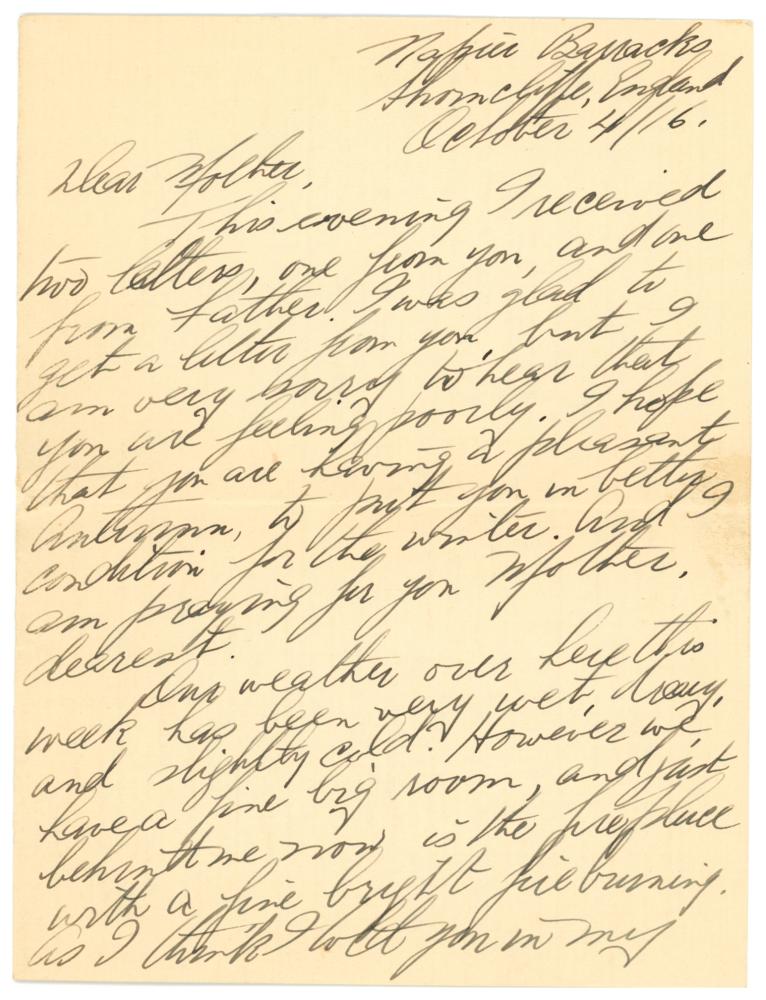 Napier Barracks
Shorncliffe, England
October 4/16.
Dear Mother,
This evening I received
two letters, one from you, and one
from Father. I was glad to
get a letter from you but I
am very sorry to hear that
you are feeling poorly. I hope
that you are having a pleasant
Autumn, to put you in better
condition for the winter. And I
am praying for you Mother,
dearest.
Our weather over here this
week has been very wet, dreary,
and slightly cold. However we
have a fine big room, and just
behind me now is the fireplace
with a fine bright fire burning.
As I think I told you in my